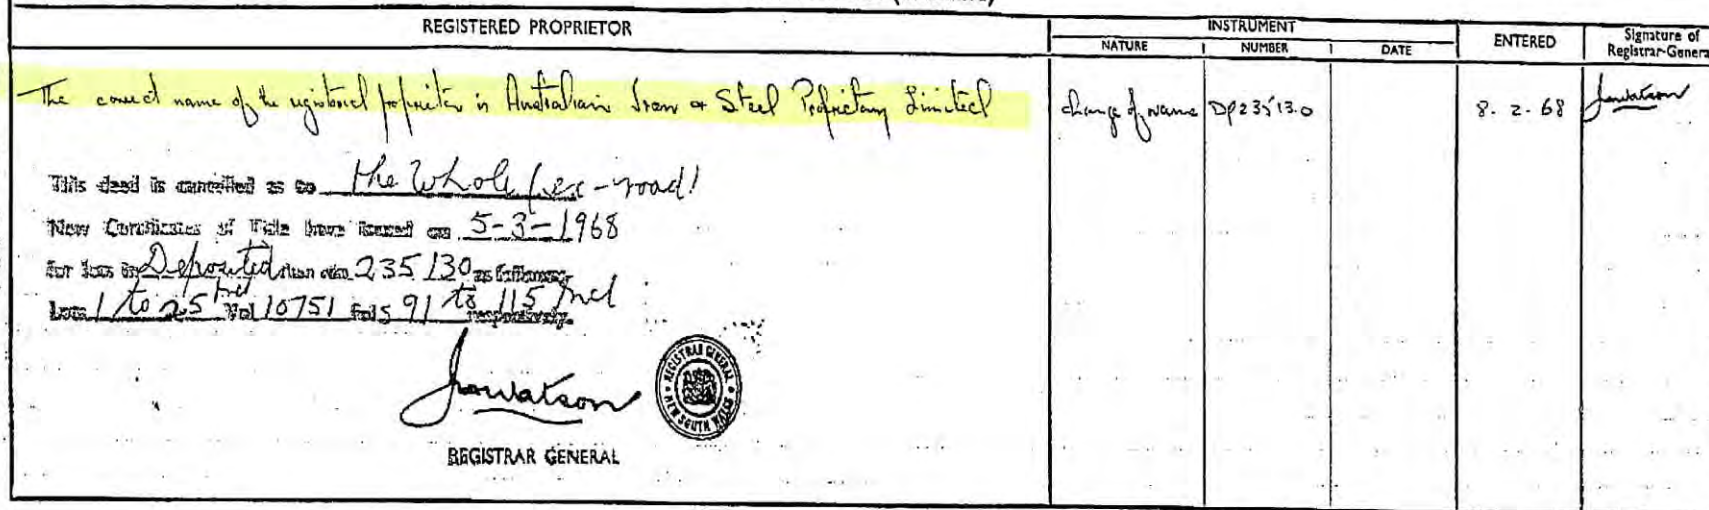 REGISTERED PROPRIETOR
INSTRUMENT
NATURE NUMBER DATE
ENTERED
Signature of
Registrar-General
The correct name of the registered proprietor is Australian Iron & Steel Proprietary Limited change of name DP235130 8. 2. 68 Jawatson
This deed is cancelled as to the Whole (ex-road)
New Certificates of Title have issued on 5-3-1968
for lots in Deposited Plan No. 235130 as follows:
Lots 1 to 25 Incl Vol 10751 Fols 91 to 115 Incl respectively.
Jawatson
REGISTRAR GENERAL NEW SOUTH WALES
REGISTRAR GENERAL